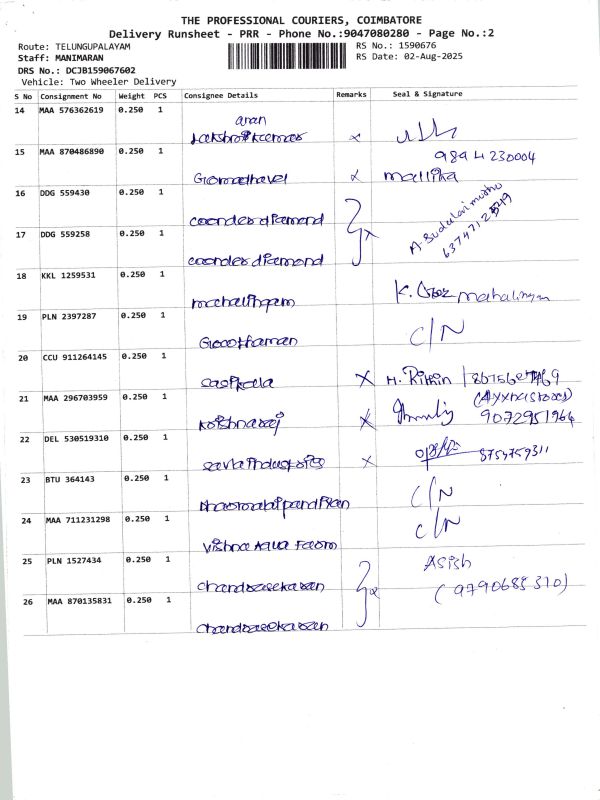 THE PROFESSIONAL COURIERS, COIMBATORE
Delivery Runsheet - PRR - Phone No.:9047080280 - Page No.:2
Route: TELUNGUPALAYAM RS No.: 1590676
Staff: MANIMARAN RS Date: 02-Aug-2025
DRS No.: DCJB159067602
Vehicle: Two Wheeler Delivery
S No Consignment No Weight PCS Consignee Details Remarks Seal & Signature
14 MAA 576362619 0.250 1
aran
Lakshmikumar x
15 MAA 870486890 0.250 1 9894230004
Gomathavel x mallika
16 DDG 559430 0.250 1
coonder diamond A. Sudalai muthu
17 DDG 559258 0.250 1 x
coonder diamond
18 KKL 1259531 0.250 1
mahalingam K. mahalingam
19 PLN 2397287 0.250 1
C/N
20 CCU 911264145 0.250 1
Sasikala x H. Rithin
21 MAA 296703959 0.250 1
Krishnaraj x 9072951964
22 DEL 530519310 0.250 1
savla industries x 8754759311
23 BTU 364143 0.250 1
C/N
24 MAA 711231298 0.250 1 C/N
Vishna Aqua Farm
25 PLN 1527434 0.250 1 Asish
chandrasekaran (9790685310)
26 MAA 870135831 0.250 1
chandrasekaran